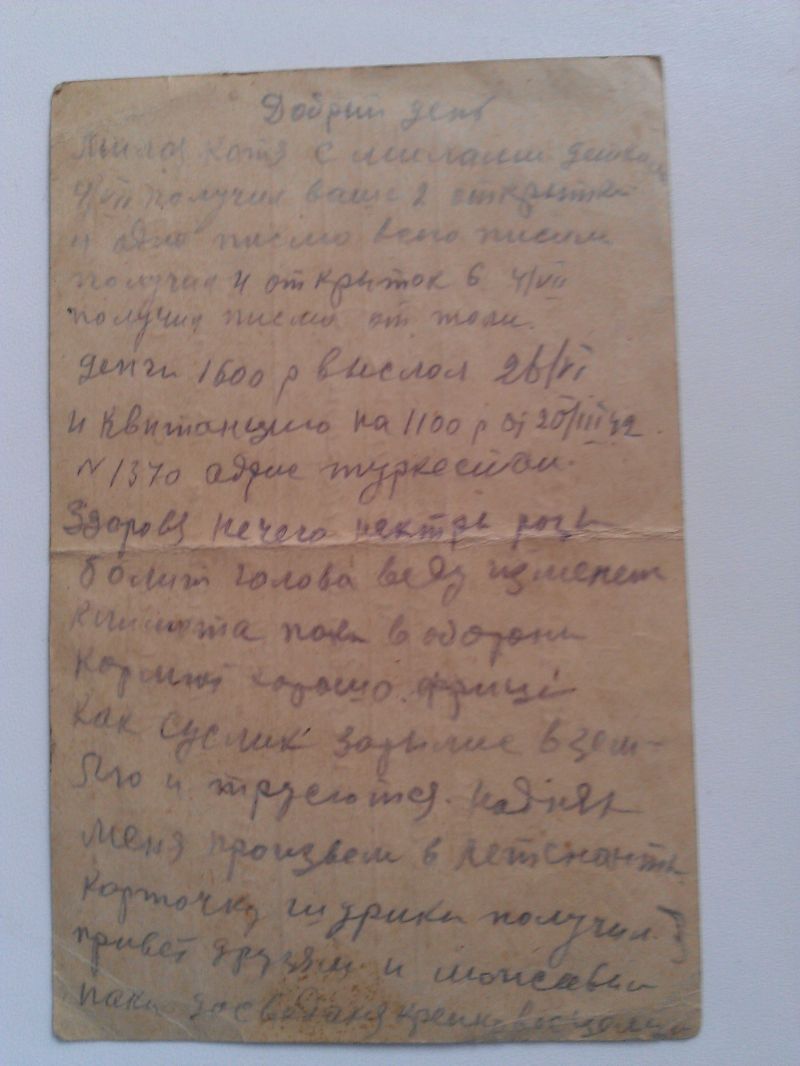 Добрый день
Милоя Котя с милами деткам
4/VII получил ваши 2 открытки
и одно писмо всего писем
получил и открыток 6 4/VII
получил писмо от толи.
денги 1600 р выслол 26/VI
и квитанцию на 1100 р от 25/III 42
N 1370 адрис туркестан.
Здоровя нечего
болит голова веду изменет
климота пока в обороне
Кормят хорошо. фрици
как суслик зарылис в зем-
лю и трусютися. на днях
меня произвели в летенонты
корточку получил
привет друзям и
пока досвидания крепко вас целую